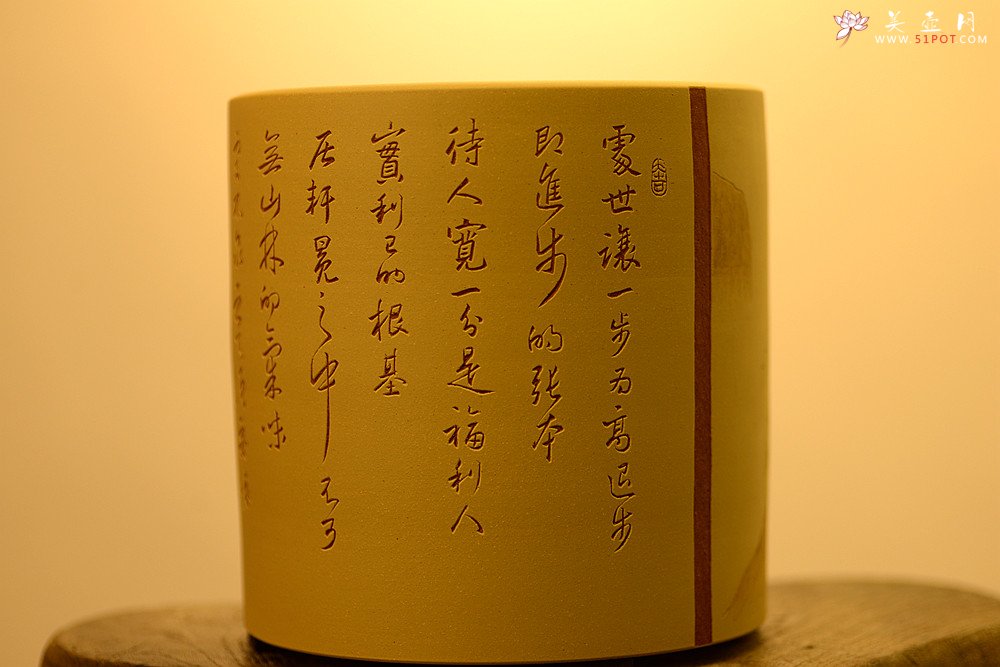 處世讓一步為高退步
即進步的張本
待人寬一分是福利人
實利己的根基
居軒冕之中不可
無山林的氣味
美壺网
WWW.51POT.COM